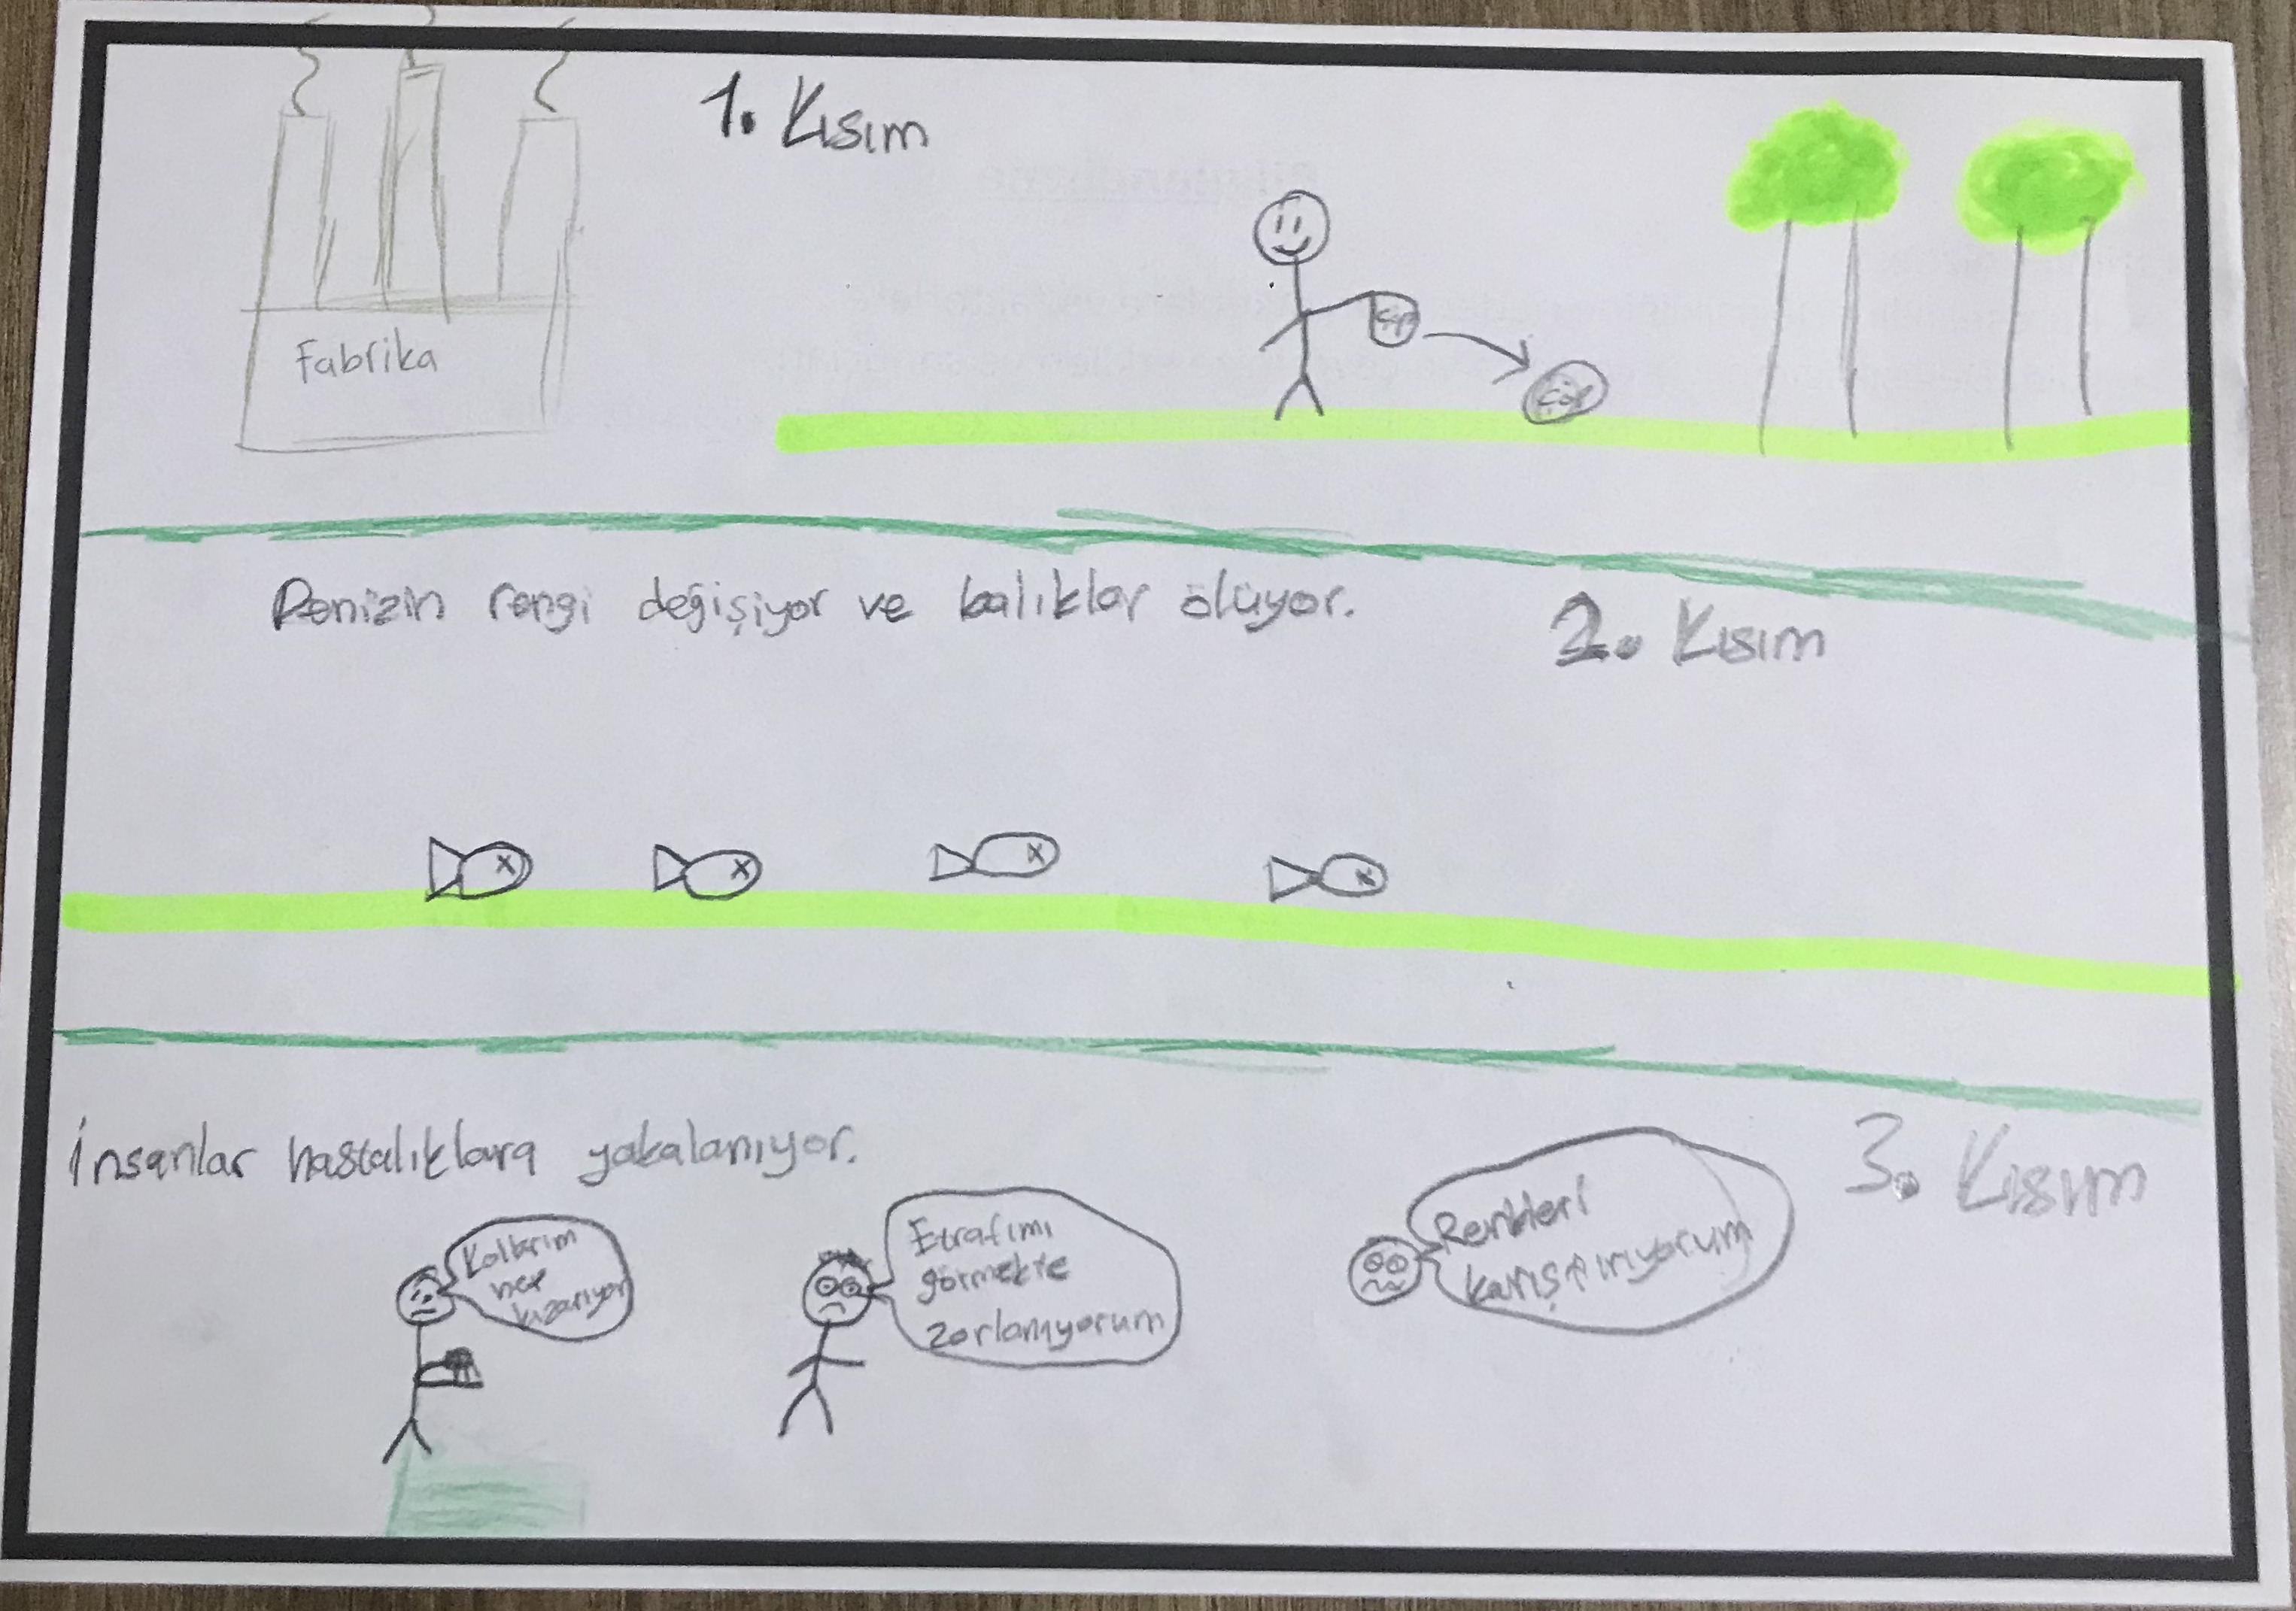 1. Kısım
Fabrika
çöp
çöp
Denizin rengi değişiyor ve balıklar ölüyor.
2. Kısım
İnsanlar hastalıklara yakalanıyor.
3. Kısım
Kollarım
hep
kızarıyor
Etrafımı
görmekte
zorlanıyorum
Renkleri
karıştırıyorum